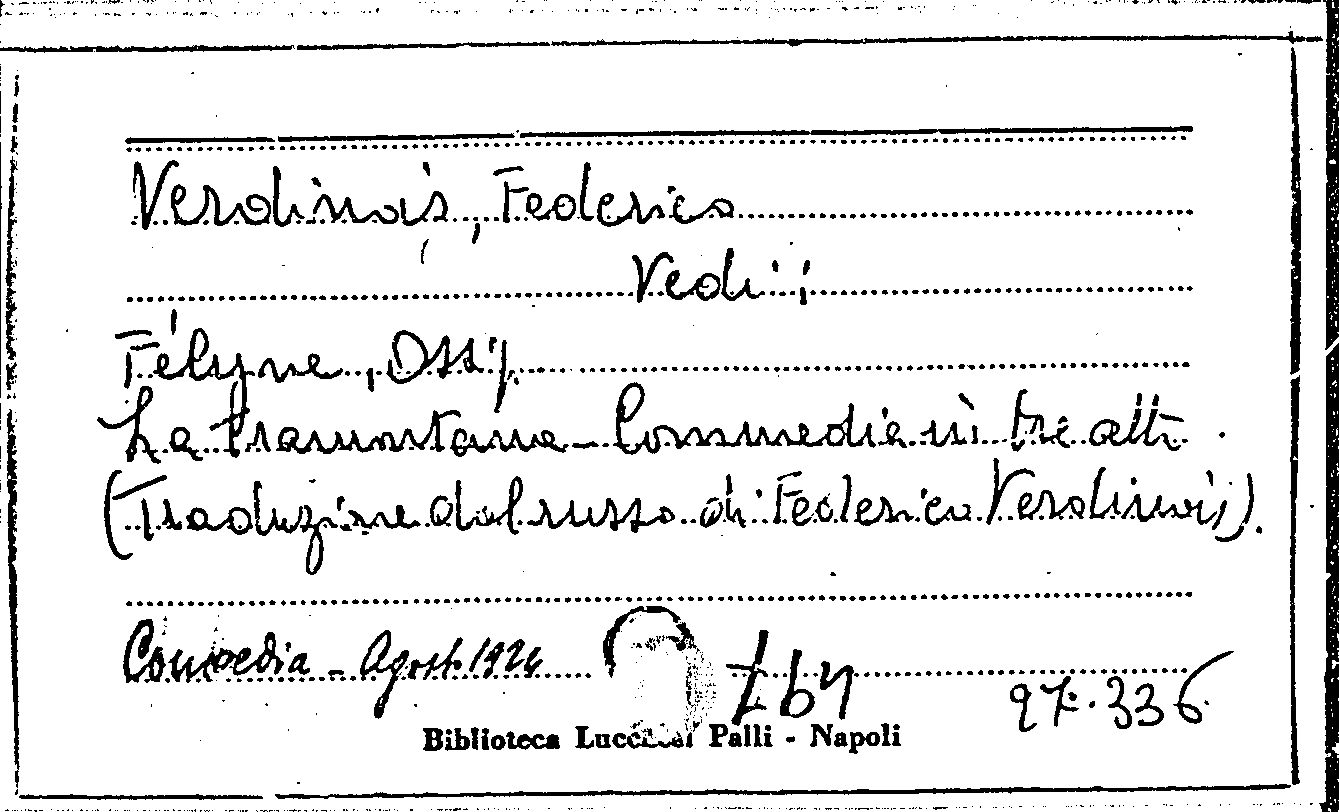 Verdinois, Federico
Vedi:
Félyne, Ossip.
La tramontana - Commedia in tre atti.
(Traduzione dal russo di Federico Verdinois).
Comoedia - Agosto 1924
97.336
Biblioteca Lucchesi Palli - Napoli